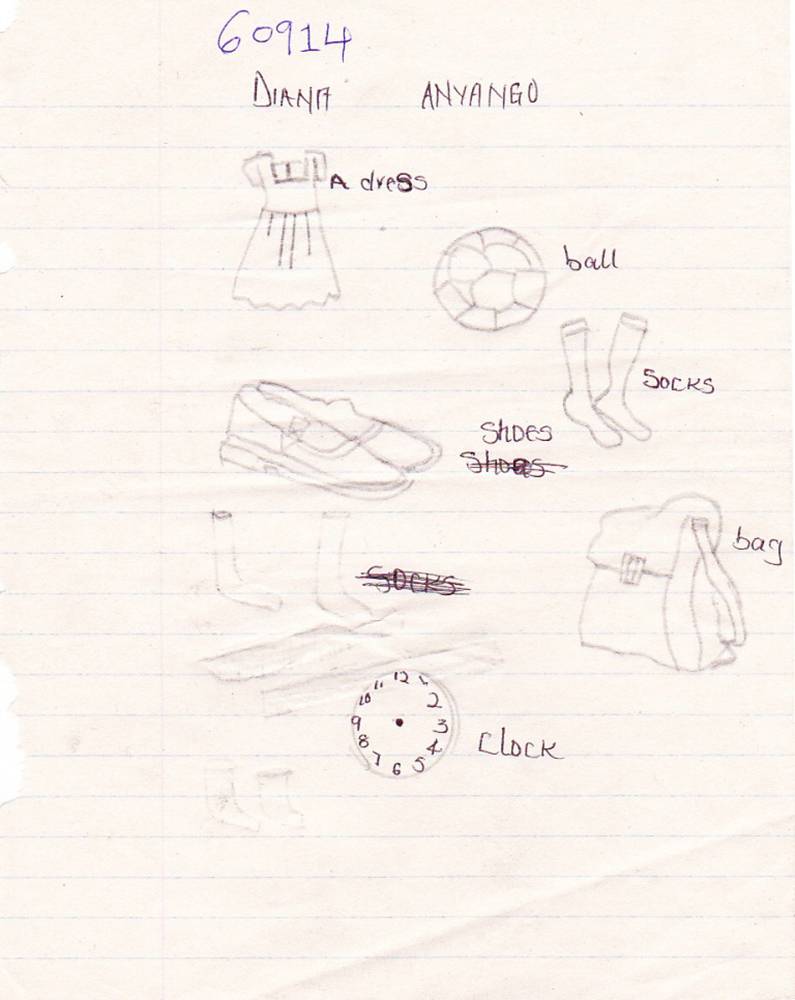 60914
DIANA ANYANGO
A dress
ball
SOCKS
ShOES
Shoes
bag
SOCKS
12
11
10
2
9
3
8
4
7
5
6
Clock